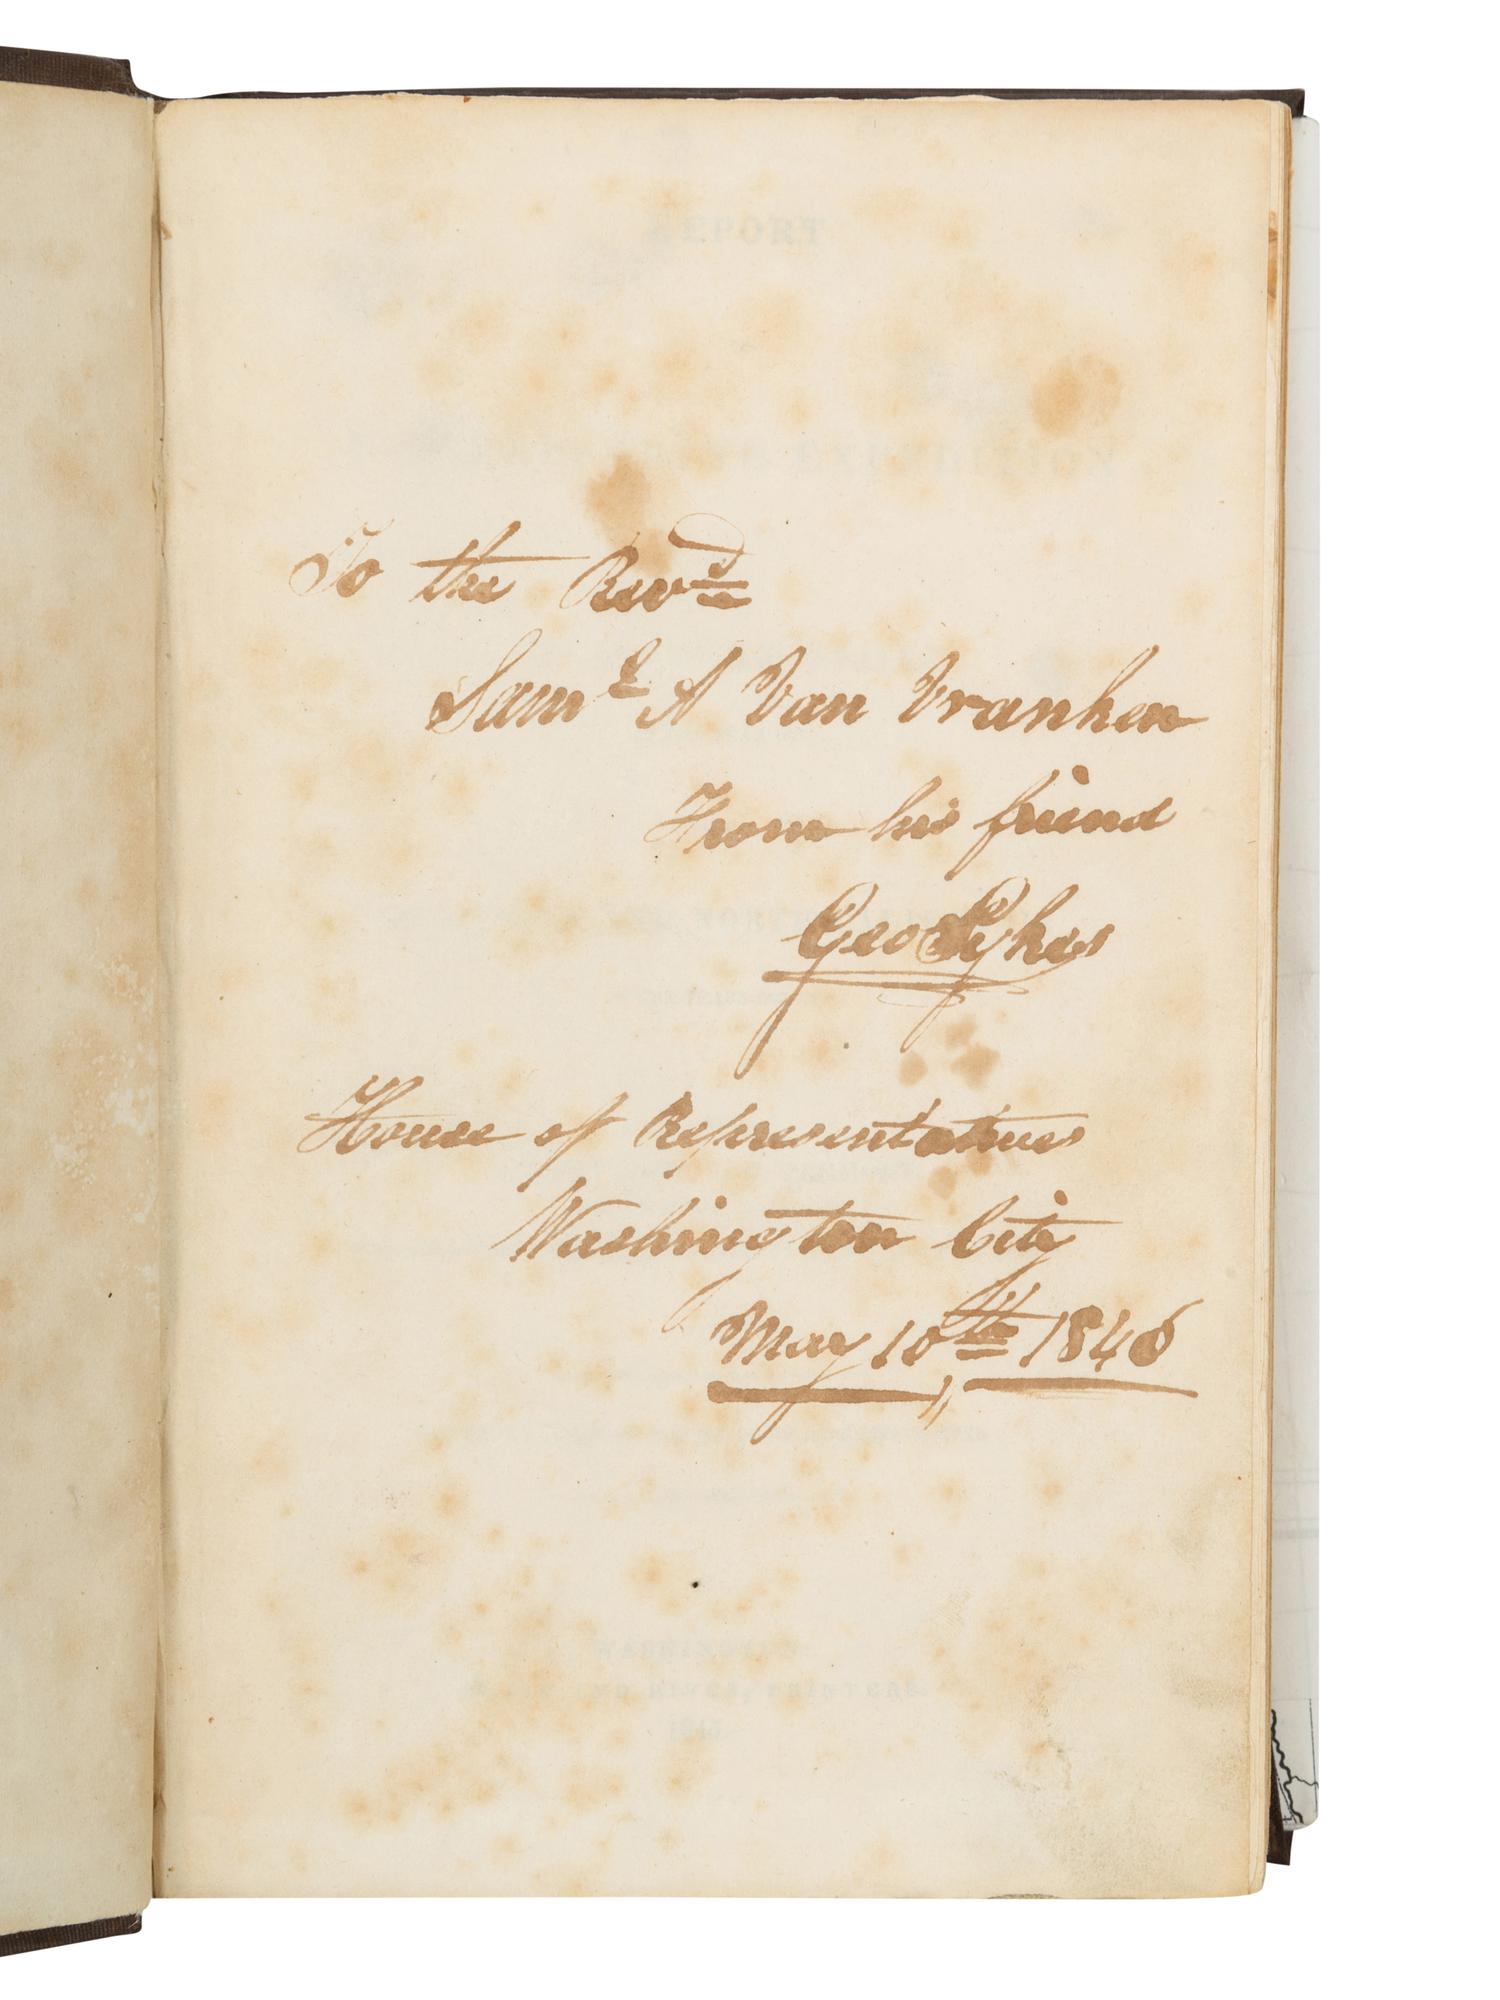 REPORT
EXPEDITION
To the Revd
Saml A Van Vranken
From his friend
Geo Sykes
NORTH
House of Representatives
Washington City
May 10th 1846
WASHINGTON
RIVES, PRINTERS.
1845.